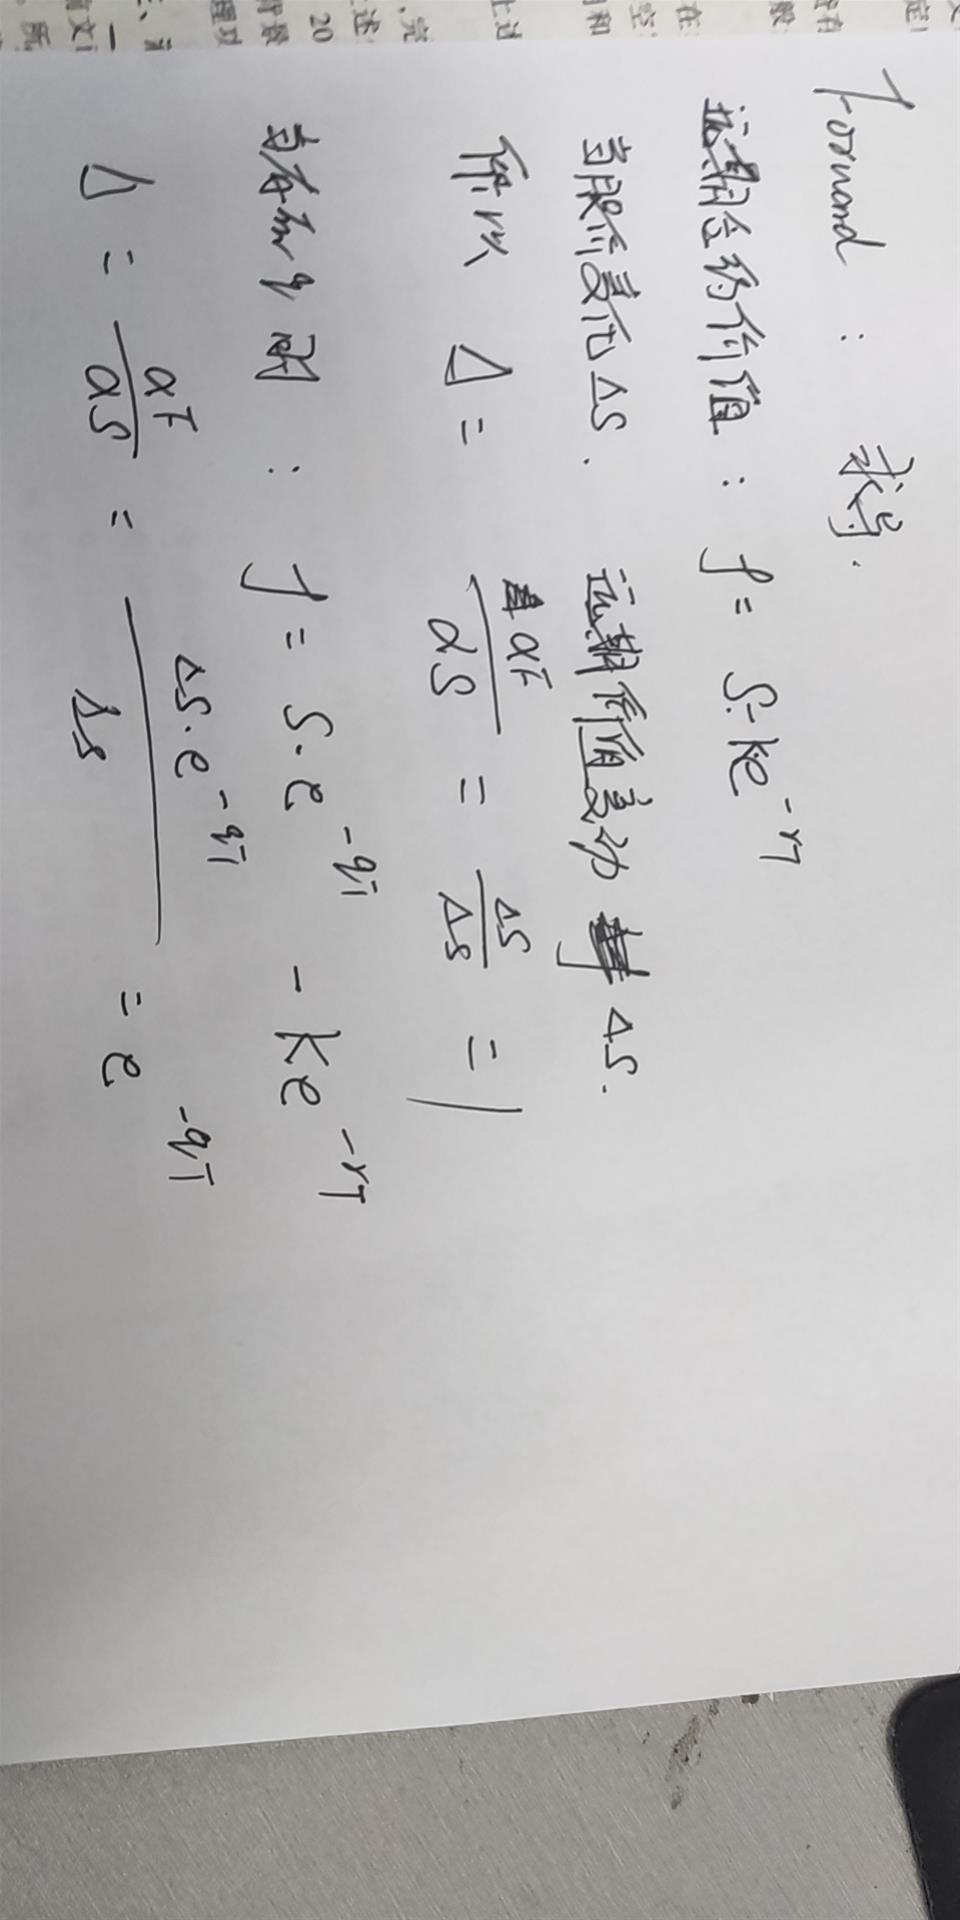 Forward : 求导.
远期合约价值 : f = S - ke^{-rT}
当股价变化 ΔS. 远期价值变动 ΔS.
所以 Δ = \frac{αF}{αS} = \frac{ΔS}{ΔS} = 1
当存在 q 时 : f = S·e^{-qT} - ke^{-rT}
Δ = \frac{αF}{αS} = \frac{ΔS·e^{-qT}}{ΔS} = e^{-qT}